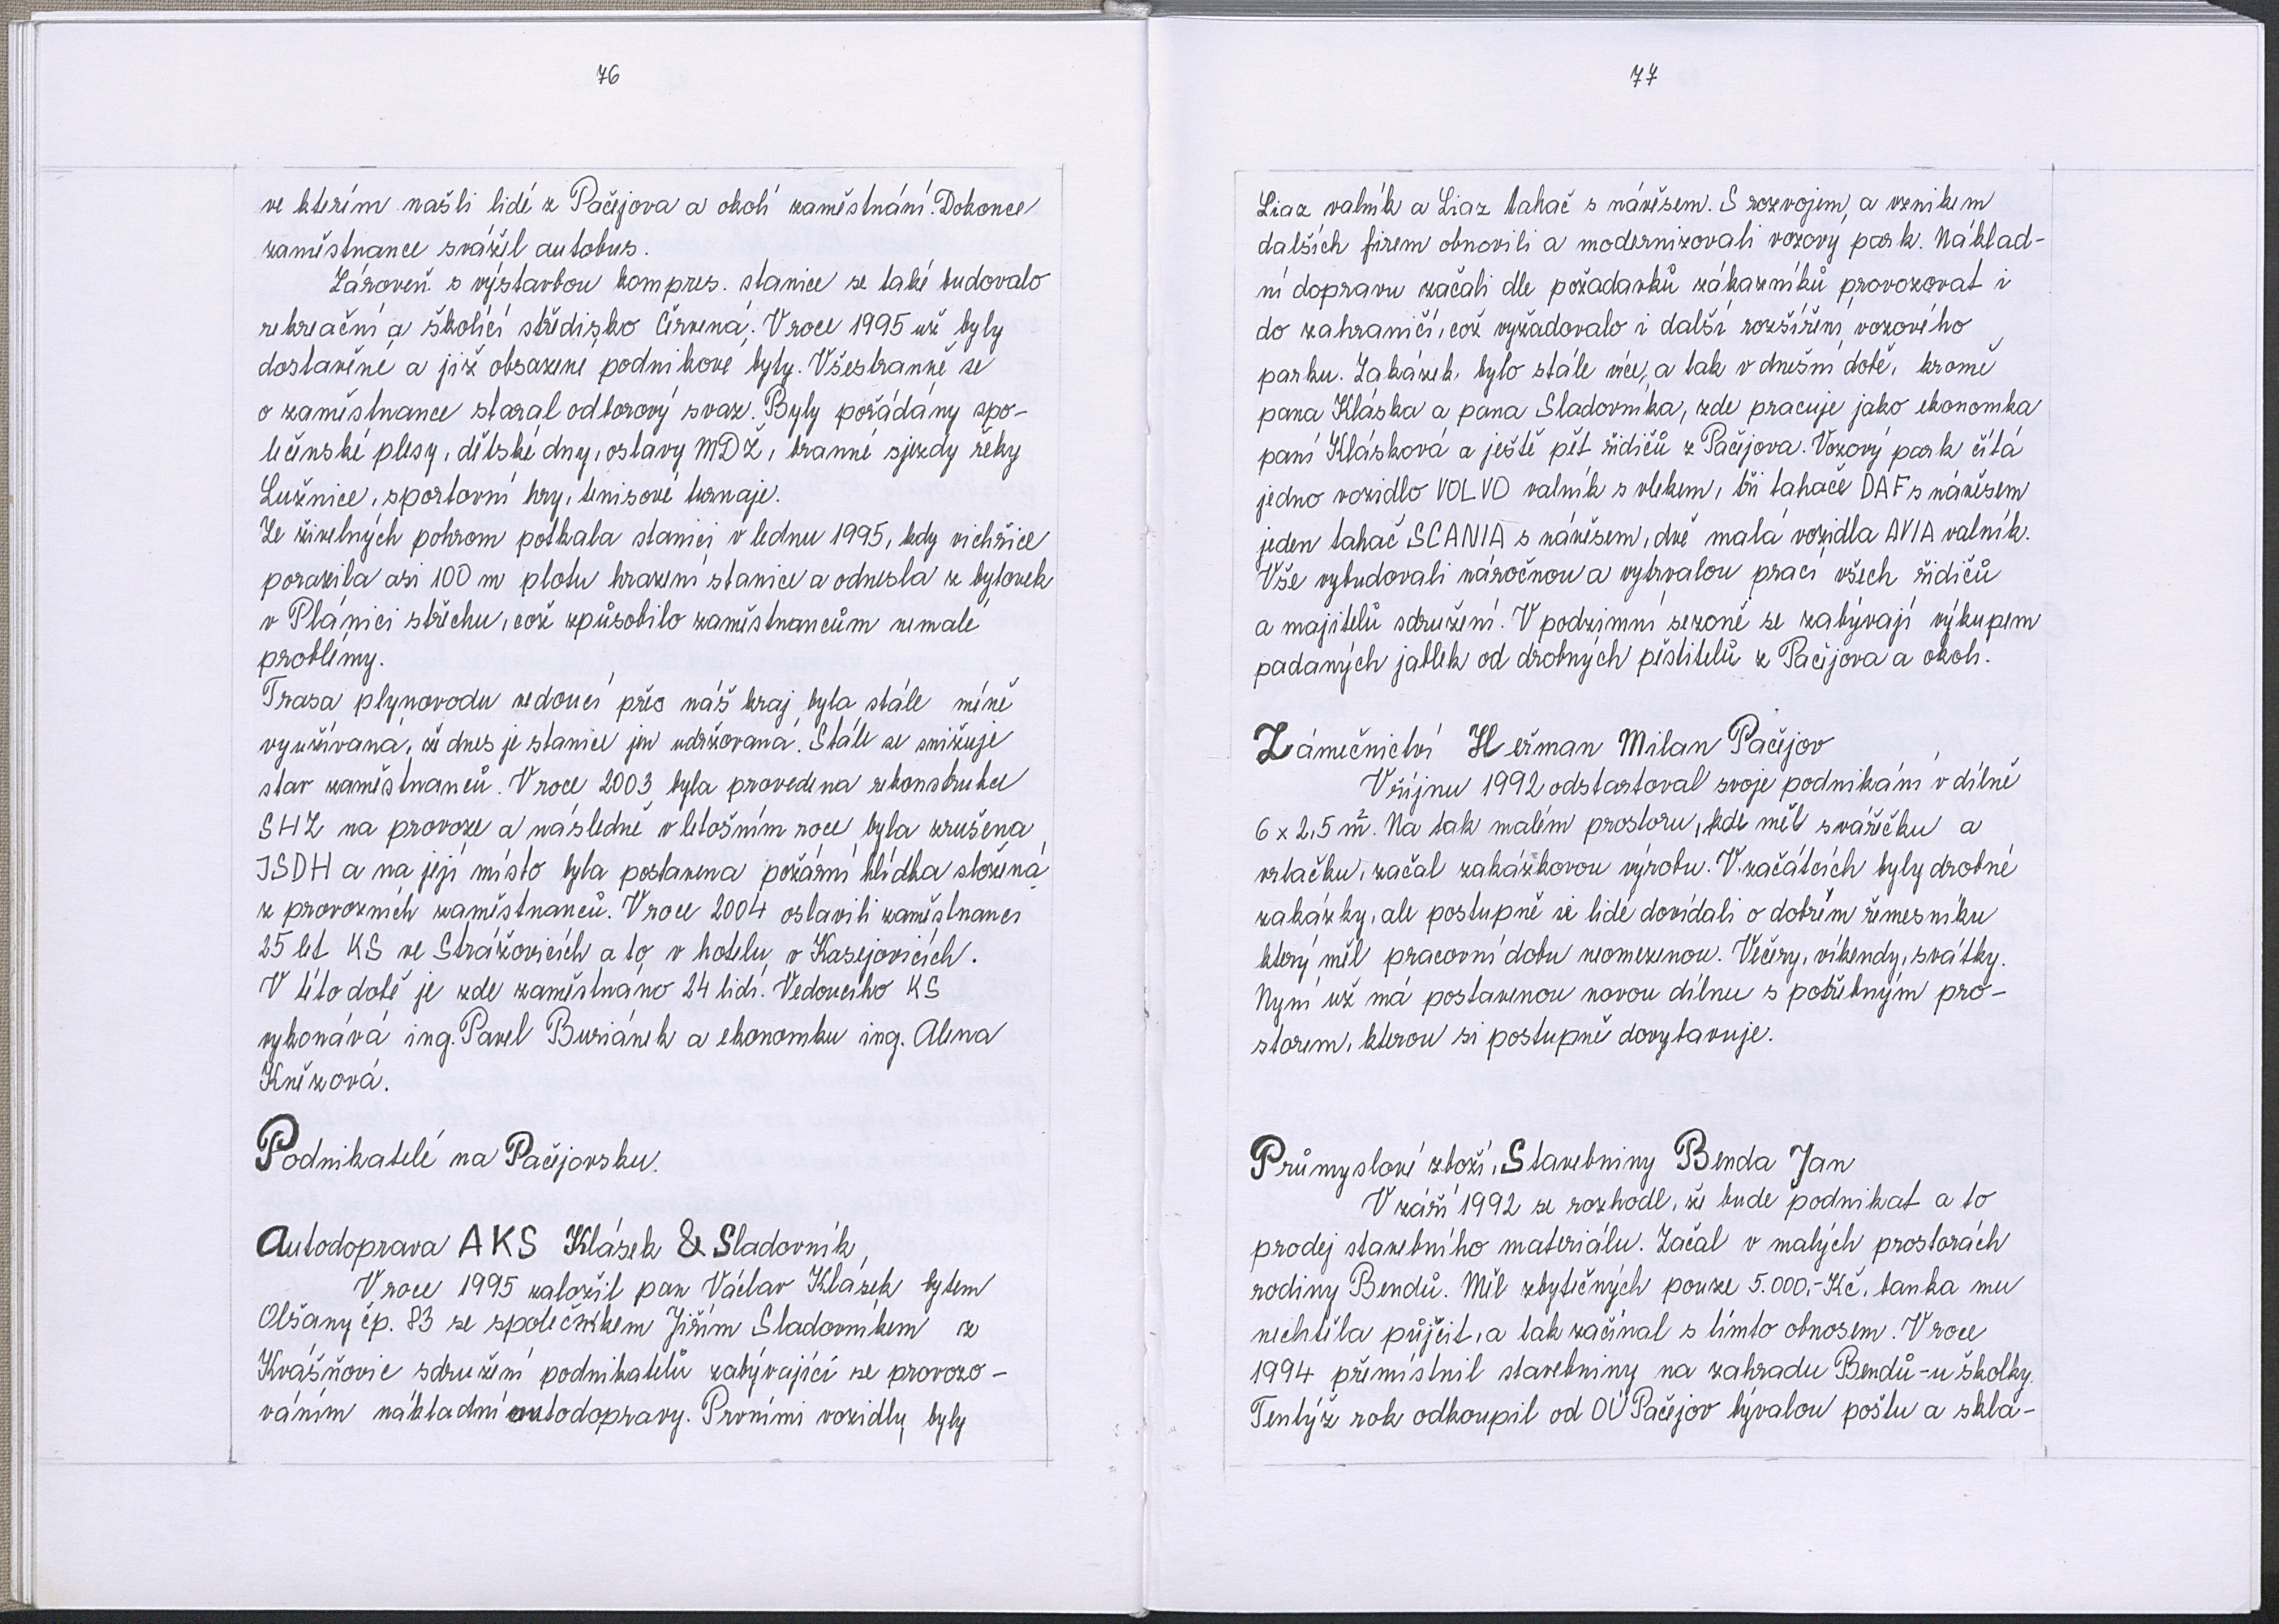 76
ve kterém našli lidé z Pačejova a okolí zaměstnání. Dokonce
zaměstnance svážel autobus.
Zároveň s výstavbou kompres. stanice se také budovalo
rekreační a školící středisko Červená. V roce 1995 už byly
dostavěné a již obsazené podnikové byty. Všestranně se
o zaměstnance staral odborový svaz. Byly pořádány spo-
lečenské plesy, dětské dny, oslavy MDŽ, branné sjezdy řeky
Lužnice, sportovní hry, tenisové turnaje.
Ze živelných pohrom potkala stanici v lednu 1995, kdy vichřice
porazila asi 100 m plotu hrazení stanice a odnesla z bytovek
v Plánici střechu, což způsobilo zaměstnancům nemalé
problémy.
Trasa plynovodu vedoucí přes náš kraj byla stále méně
využívaná, že dnes je stanice jen udržovaná. Stále se snižuje
stav zaměstnanců. V roce 2003 byla provedena rekonstrukce
SHZ na provoze a následně v letošním roce byla zrušena
JSDH a na její místo byla postavena požární hlídka složená
z provozních zaměstnanců. V roce 2004 oslavili zaměstnanci
25 let KS ve Strážovicích a to v hotelu v Kasejovicích.
V této době je zde zaměstnáno 24 lidí. Vedoucího KS
vykonává ing. Pavel Buriánek a ekonomku ing. Alena
Knězová.
Podnikatelé na Pačejovsku.
Autodoprava AKS Klásek & Sladovník,
V roce 1995 založil pan Václav Klásek bytem
Olšany čp. 83 se společníkem Jiřím Sladovníkem z
Kvášňovic sdružení podnikatelů zabývající se provozo-
váním nákladní autodopravy. Prvními vozidly byly
77
Liaz valník a Liaz tahač s návěsem. S rozvojem a vznikem
dalších firem obnovili a modernizovali vozový park. Náklad-
ní dopravu začali dle požadavků zákazníků provozovat i
do zahraničí, což vyžadovalo i další rozšíření vozového
parku. Zakázek bylo stále více, a tak v dnešní době, kromě
pana Kláska a pana Sladovníka, zde pracuje jako ekonomka
paní Klásková a ještě pět řidičů z Pačejova. Vozový park čítá
jedno vozidlo VOLVO valník s vlekem, tři tahače DAF s návěsem
jeden tahač SCANIA s návěsem, dvě malá vozidla AVIA valník.
Vše vybudovali náročnou a vytrvalou prací všech řidičů
a majitelů sdružení. V podzimní sezoně se zabývají výkupem
padaných jablek od drobných pěstitelů z Pačejova a okolí.
Zámečnictví Heřman Milan Pačejov
V říjnu 1992 odstartoval svoje podnikání v dílně
6 x 2,5 m². Na tak malém prostoru, kde měl svářečku a
vrtačku, začal zakázkovou výrobu. V začátcích byly drobné
zakázky, ale postupně se lidé dovídali o dobrém řemesníku
který měl pracovní dobu neomezenou. Večery, víkendy, svátky.
Nyní už má postavenou novou dílnu s potřebným pro-
storem, kterou si postupně dovybavuje.
Průmyslové zboží, Stavebniny Benda Jan
V září 1992 se rozhodl, že bude podnikat a to
prodej stavebního materiálu. Začal v malých prostorách
rodiny Bendů. Měl zbytečných pouze 5.000,- Kč, banka mu
nechtěla půjčit, a tak začínal s tímto obnosem. V roce
1994 přemístnil stavebniny na zahradu Bendů - u školky.
Tentýž rok odkoupil od OÚ Pačejov bývalou poštu a skla-